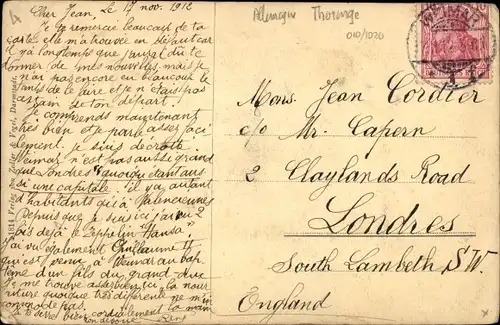 4
Cher Jean, Le 17 nov. 1912
Je te remercie beaucoup de ta
carte elle m'a trouvé en
il y a longtemps que j'aurai dû te
donner de mes nouvelles mais je
n'ai pas encore eu beaucoup le
temps de le faire et n'étais pas
de ton départ.
Je comprends maintenant
très bien et parle assez faci
lement. je suis
Weimar n'est pas aussi grand
que Londres quoique étant aussi
si une capitale. il y a autant
d'habitants qu'à Valenciennes
Depuis que je suis ici j'ai vu 2
fois déjà le Zeppelin "Hansa"
J'ai vu également Guillaume II
qui est venu à Weimar au bap
tême d'un fils du grand-duc
Je me trouve assez bien ici la nou
rriture quoique très différente ne m'in
commode pas.
Je te serre bien cordialement la main
Allemagne Thuringe
010/1030
WEIMAR
Mons. Jean Cordier
c/o Mr. Capern
2 Claylands Road
Londres
South Lambeth S.W.
England